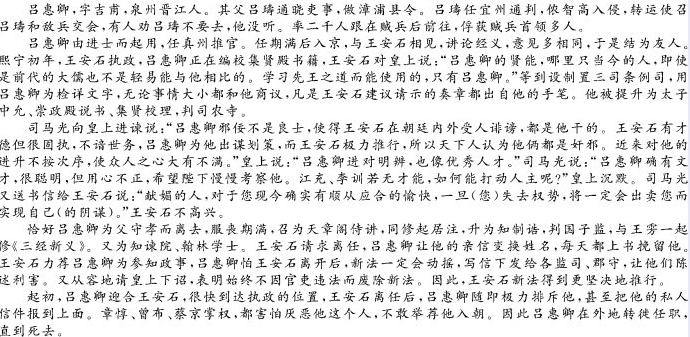 吕惠卿,字吉甫,泉州晋江人。其父吕璹通晓吏事,做漳浦县令。吕璹任宜州通判,侬智高入侵,转运使召
吕璹和敌兵交会,有人劝吕璹不要去,他没听。率二千人跟在贼兵后前往,俘获贼兵首领多人。
吕惠卿由进士而起用,任真州推官。任期满后入京,与王安石相见,讲论经义,意见多相同,于是结为友人。
熙宁初年,王安石执政,吕惠卿正在编校集贤殿书籍,王安石对皇上说:“吕惠卿的贤能,哪里只当今的人,即使
是前代的大儒也不是轻易能与他相比的。学习先王之道而能使用的,只有吕惠卿。”等到设制置三司条例司,用
吕惠卿为检详文字,无论事情大小都和他商议,凡是王安石建议请示的奏章都出自他的手笔。他被提升为太子
中允、崇政殿说书、集贤校理,判司农寺。
司马光向皇上进谏说:“吕惠卿邪佞不是良士,使得王安石在朝廷内外受人诽谤,都是他干的。王安石有才
德但很固执,不谙世务,吕惠卿为他出谋划策,而王安石极力推行,所以天下人认为他俩都是奸邪。近来对他的
进升不按次序,使众人之心大有不满。”皇上说:“吕惠卿进对明辨,也像优秀人才。”司马光说:“吕惠卿确有文
才,很聪明,但用心不正,希望陛下慢慢考察他。江充、李训若无才能,如何能打动人主呢?”皇上沉默。司马光
又送书信给王安石说:“献媚的人,对于您现今确实有顺从应合的愉快,一旦(您)失去权势,将一定会出卖您而
实现自己(的阴谋)。”王安石不高兴。
恰好吕惠卿为父守孝而离去,服丧期满,召为天章阁侍讲,同修起居注,升为知制诰,判国子监,与王雱一起
修《三经新义》。又为知谏院、翰林学士。王安石请求离任,吕惠卿让他的亲信变换姓名,每天都上书挽留他。
王安石力荐吕惠卿为参知政事,吕惠卿怕王安石离开后,新法一定会动摇,写信下发给各监司、郡守,让他们陈
述利害。又从容地请皇上下诏,表明始终不因官吏违法而废除新法。因此,王安石新法得到更坚决地推行。
起初,吕惠卿迎合王安石,很快到达执政的位置,王安石离任后,吕惠卿随即极力排斥他,甚至把他的私人
信件报到上面。章惇、曾布、蔡京掌权,都害怕厌恶他这个人,不敢举荐他入朝。因此吕惠卿在外地转徙任职,
直到死去。